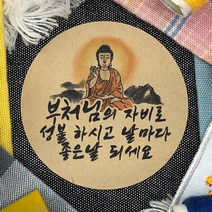 부처님의 자비로
성불 하시고 날마다
좋은날 되세요